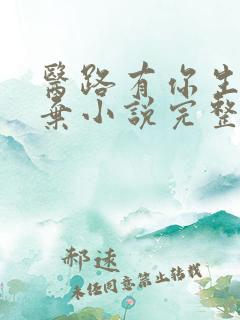 醫路有你生
棄小説完整
郝逺
未经同意禁止转载